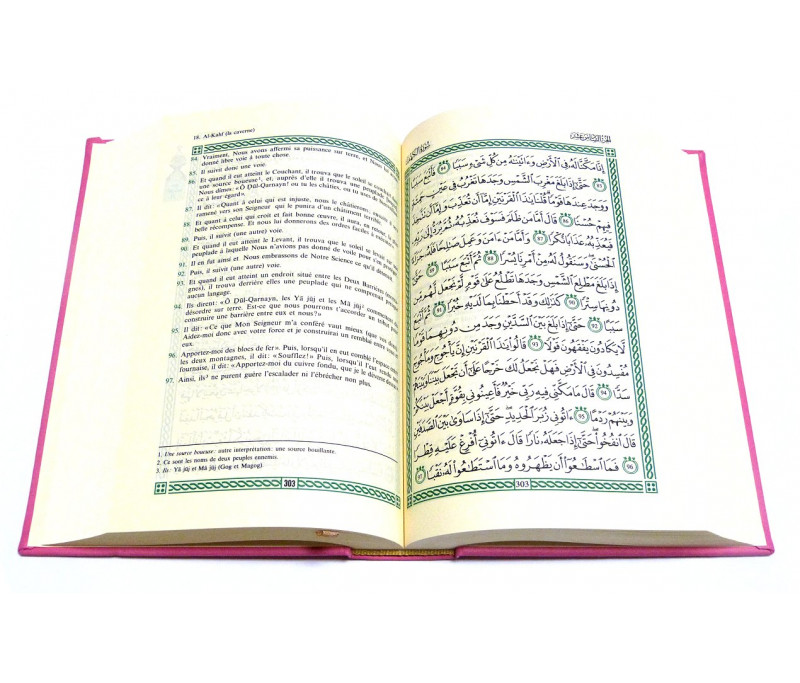 18. Al-Kahf (la caverne)
84. Vraiment, Nous avons affermi sa puissance sur terre, et Nous lui
donné libre voie à toute chose.
85. Il suivit donc une voie.
86. Et quand il eut atteint le Couchant, il trouva que le soleil se
une source boueuse¹, et, auprès d'elle il trouva une peuplade
Nous dîmes: «Ô Dûl-Qarnayn! ou tu les châties, ou tu uses de
ce à leur égard».
87. Il dit: «Quant à celui qui est injuste, nous le châtierons,
ramené vers son Seigneur qui le punira d'un châtiment
88. Et quant à celui qui croit et fait bonne œuvre, il aura, en
belle récompense. Et nous lui donnerons des ordres faciles à
89. Puis, il suivit (une autre) voie.
90. Et quand il eut atteint le Levant, il trouva que le soleil se levait sur
peuplade à laquelle Nous n'avions pas donné de voile pour s'en
91. Il en fut ainsi et Nous embrassons de Notre Science ce qu'il
92. Puis, il suivit (une autre) voie.
93. Et quand il eut atteint un endroit situé entre les Deux Barrières
gnes), il trouva derrière elles une peuplade qui ne comprenait
aucun langage.
94. Ils dirent: «Ô Dûl-Qarnayn, les Yâ jûj et les Mâ jûj² commettent
désordre sur terre. Est-ce que nous pourrons t'accorder un tribut
construire une barrière entre eux et nous?»
95. Il dit: «Ce que Mon Seigneur m'a conféré vaut mieux (que vos
Aidez-moi donc avec votre force et je construirai un remblai entre vous et
eux.
96. Apportez-moi des blocs de fer». Puis, lorsqu'il en eut comblé l'espace entre
les deux montagnes, il dit: «Soufflez!» Puis, lorsqu'il l'eut rendu une
fournaise, il dit: «Apportez-moi du cuivre fondu, que je le déverse dessus»
97. Ainsi, ils³ ne purent guère l'escalader ni l'ébrécher non plus.
1. Une source boueuse: autre interprétation: une source bouillante.
2. Ce sont les noms de deux peuples ennemis.
3. Ils: Yâ jûj et Mâ jûj (Gog et Magog).
303
إِنَّا مَكَّنَّا لَهُۥ فِى ٱلْأَرْضِ وَءَاتَيْنَٰهُ مِن كُلِّ شَىْءٍ سَبَبًا ٨٤ فَأَتْبَعَ سَبَبًا
٨٥ حَتَّىٰٓ إِذَا بَلَغَ مَغْرِبَ ٱلشَّمْسِ وَجَدَهَا تَغْرُبُ فِى عَيْنٍ حَمِئَةٍ
وَوَجَدَ عِندَهَا قَوْمًا قُلْنَا يَٰذَا ٱلْقَرْنَيْنِ إِمَّآ أَن تُعَذِّبَ وَإِمَّآ أَن تَتَّخِذَ
فِيهِمْ حُسْنًا ٨٦ قَالَ أَمَّا مَن ظَلَمَ فَسَوْفَ نُعَذِّبُهُۥ ثُمَّ يُرَدُّ إِلَىٰ رَبِّهِۦ
فَيُعَذِّبُهُۥ عَذَابًا نُّكْرًا ٨٧ وَأَمَّا مَنْ ءَامَنَ وَعَمِلَ صَٰلِحًا فَلَهُۥ جَزَآءً
ٱلْحُسْنَىٰ وَسَنَقُولُ لَهُۥ مِنْ أَمْرِنَا يُسْرًا ٨٨ ثُمَّ أَتْبَعَ سَبَبًا
٨٩ حَتَّىٰٓ إِذَا بَلَغَ مَطْلِعَ ٱلشَّمْسِ وَجَدَهَا تَطْلُعُ عَلَىٰ قَوْمٍ لَّمْ نَجْعَل لَّهُم مِّن
دُونِهَا سِتْرًا ٩٠ كَذَٰلِكَ وَقَدْ أَحَطْنَا بِمَا لَدَيْهِ خُبْرًا ٩١ ثُمَّ أَتْبَعَ
سَبَبًا ٩٢ حَتَّىٰٓ إِذَا بَلَغَ بَيْنَ ٱلسَّدَّيْنِ وَجَدَ مِن دُونِهِمَا قَوْمًا
لَّا يَكَادُونَ يَفْقَهُونَ قَوْلًا ٩٣ قَالُوا۟ يَٰذَا ٱلْقَرْنَيْنِ إِنَّ يَأْجُوجَ وَمَأْجُوجَ
مُفْسِدُونَ فِى ٱلْأَرْضِ فَهَلْ نَجْعَلُ لَكَ خَرْجًا عَلَىٰٓ أَن تَجْعَلَ بَيْنَنَا وَبَيْنَهُمْ
سَدًّا ٩٤ قَالَ مَا مَكَّنِّى فِيهِ رَبِّى خَيْرٌ فَأَعِينُونِى بِقُوَّةٍ أَجْعَلْ بَيْنَكُمْ
وَبَيْنَهُمْ رَدْمًا ٩٥ ءَاتُونِى زُبَرَ ٱلْحَدِيدِ حَتَّىٰٓ إِذَا سَاوَىٰ بَيْنَ ٱلصَّدَفَيْنِ
قَالَ ٱنفُخُوا۟ حَتَّىٰٓ إِذَا جَعَلَهُۥ نَارًا قَالَ ءَاتُونِىٓ أُفْرِغْ عَلَيْهِ قِطْرًا
٩٦ فَمَا ٱسْطَٰعُوٓا۟ أَن يَظْهَرُوهُ وَمَا ٱسْتَطَٰعُوا۟ لَهُۥ نَقْبًا ٩٧
303